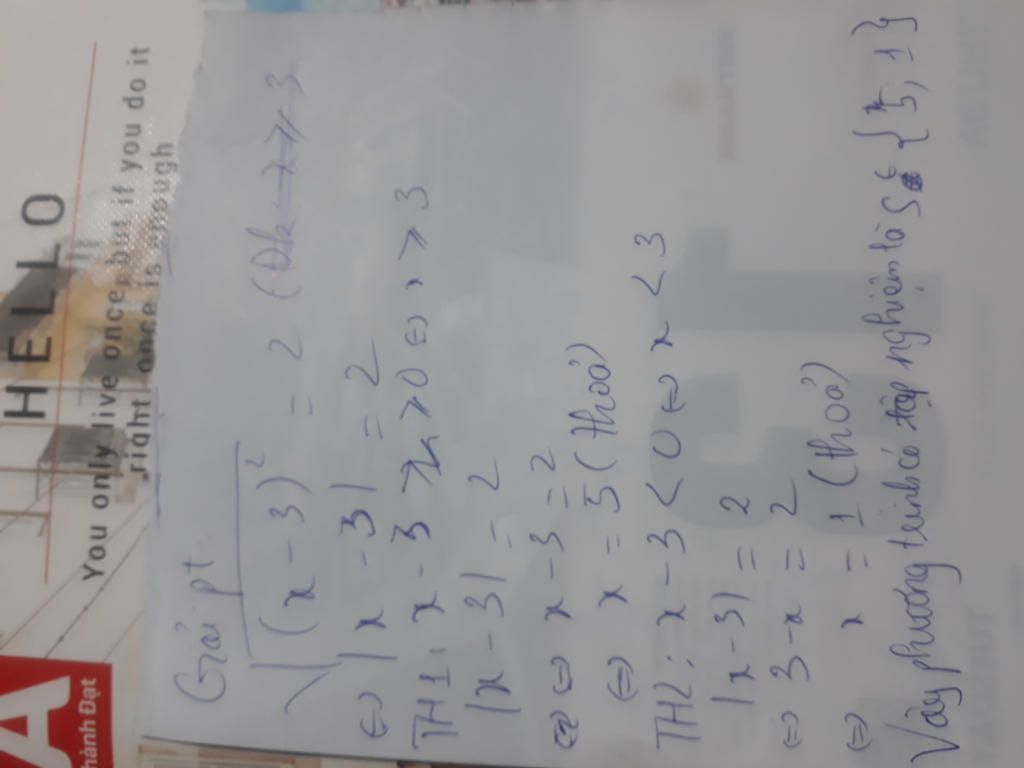 HELLO
You only live once, but if you do it
right, once is enough
A
hành Đạt
Giải pt
√(x-3)² = 2 (Đk x ≥ 3
⇔ |x - 3| = 2
TH1: x - 3 ≥ 0 ⇔ x ≥ 3
|x - 3| = 2
⇔ x - 3 = 2
⇔ x = 5 (thoả)
TH2: x - 3 < 0 ⇔ x < 3
|x - 3| = 2
⇔ 3 - x = 2
⇔ x = 1 (thoả)
Vậy phương trình có tập nghiệm là S ∈ {5; 1}